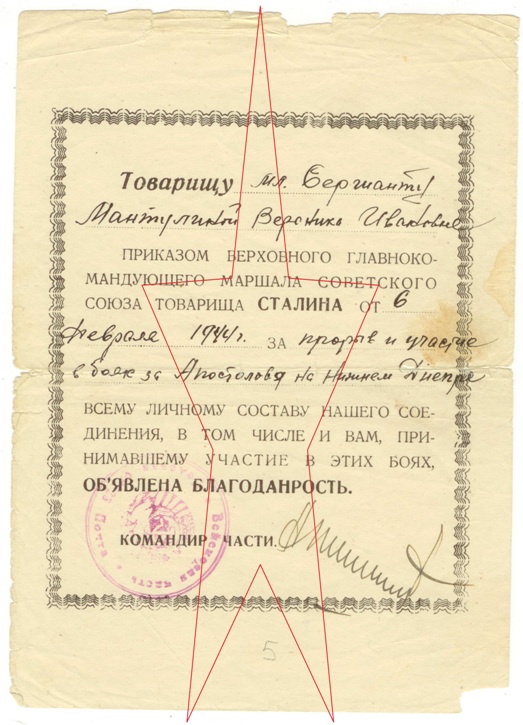 Товарищу мл. Сержанту
Мантулиной Веронике Ивановне
ПРИКАЗОМ ВЕРХОВНОГО ГЛАВНОКО-
МАНДУЮЩЕГО МАРШАЛА СОВЕТСКОГО
СОЮЗА ТОВАРИЩА СТАЛИНА ОТ 6
февраля 1944г. ЗА прорыв и участие
в боях за Апостолово на Нижнем Днепре
ВСЕМУ ЛИЧНОМУ СОСТАВУ НАШЕГО СОЕ-
ДИНЕНИЯ, В ТОМ ЧИСЛЕ И ВАМ, ПРИ-
НИМАВШЕМУ УЧАСТИЕ В ЭТИХ БОЯХ,
ОБ'ЯВЛЕНА БЛАГОДАНРОСТЬ.
КОМАНДИР ЧАСТИ.
Войсковая часть
Полев
5